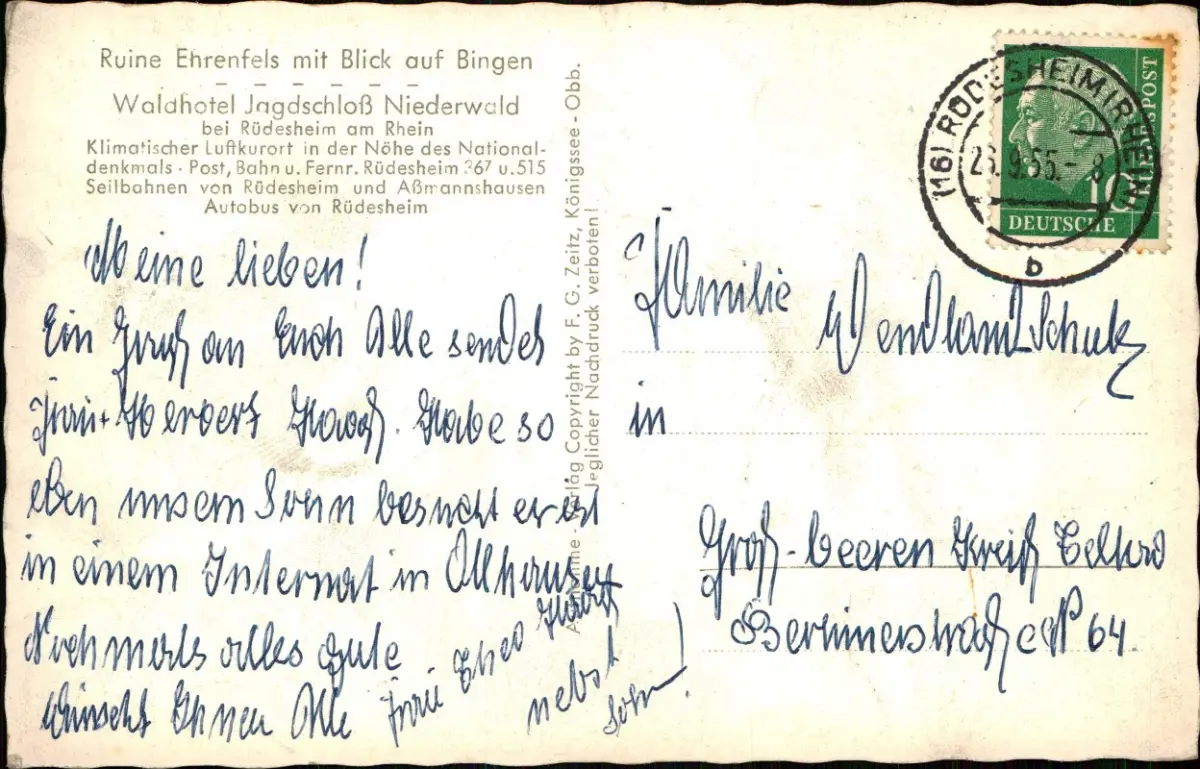 Ruine Ehrenfels mit Blick auf Bingen
Waldhotel Jagdschloß Niederwald
bei Rüdesheim am Rhein
Klimatischer Luftkurort in der Nähe des National-
denkmals · Post, Bahn u. Fernr. Rüdesheim 367 u. 515
Seilbahnen von Rüdesheim und Aßmannshausen
Autobus von Rüdesheim
Meine lieben!
Ein Gruß an Euch Alle sendet
Frau Herbert Haag. Habe so
eben unsern Sohn besucht er ist
in einem Internat in
Nochmals alles gute
wünscht Ihnen Alle Frau
nebst
Sohn!
Verlag Copyright by F. G. Zeitz, Königssee - Obb.
Jeglicher Nachdruck verboten!
(16) RÜDESHEIM (RHEIN)
9.55.- 8
b
10
DEUTSCHE
BUNDESPOST
Familie
Wendland Schulz
in
Groß-beeren Kreiß Teltow
Berlinerstraße N 64.